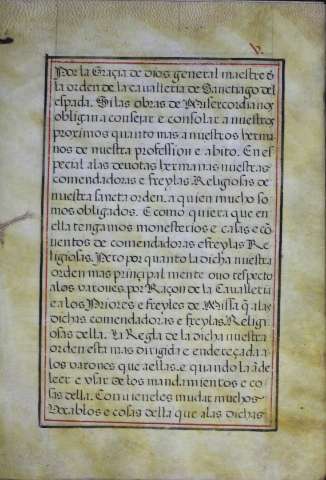 v.
Por la Gracia de dios general maestre d
la orden de la cavalleria de Sanctiago del
espada. Si las obras de Misericordia nos
obligan a consejar e consolar a nuestros
proximos quanto mas a nuestros herma
nos de nuestra profession e abito. En es
pecial a las devotas hermanas nuestras
comendadoras e freylas. Religiosas de
nuestra sancta orden. a quien mucho so
mos obligados. E como quiera que en
ella tengamos monesterios e casas e cō
uentos de comendadoras e freylas Re
ligiosas. Pero por quanto la dicha nuestra
orden mas principal mente ovo respecto
a los varones. por Raçon de la Cavalleria
e a los Priores e freyles de Missa q̄ a las
dichas comendadoras e freylas. Religi
osas della. La Regla de la dicha nuestra
orden esta mas dirigida e endereçada a
los varones que a ellas. e quando la ā de
leer e vsar de los mandamientos e co
sas della. Convieneles mudar muchos
Vocablos e cosas della que a las dichas